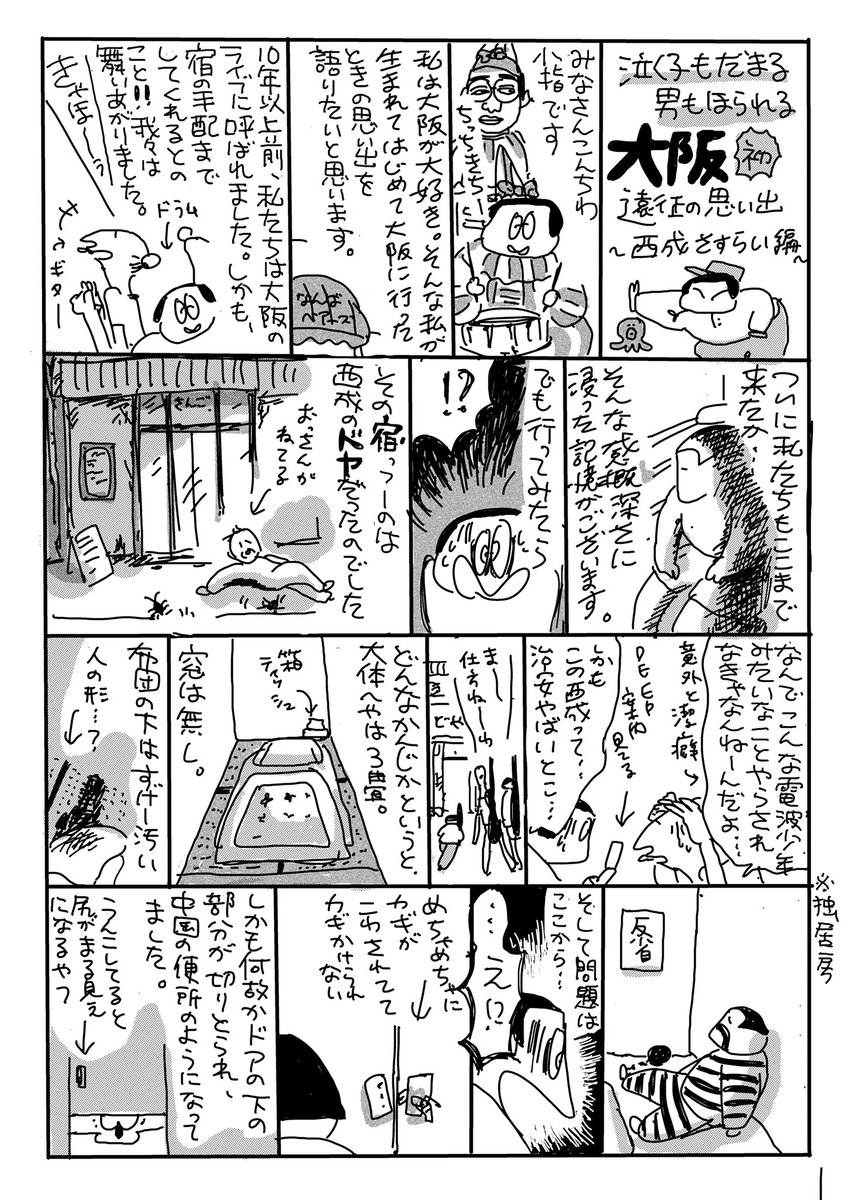 泣く子もだまる
男もほられる
大阪
初
遠征の思い出
～西成さすらい編～
みなさんこんちわ
小指です
ちっちきちー
私は大阪が大好き。そんな私が
生まれてはじめて大阪に行った
ときの思い出を
語りたいと思います。
なんば
10年以上前、私たちは大阪の
ライブに呼ばれました。しかも、
宿の手配まで
してくれるとの
こと!!我々は
舞いあがりました。
きゃほーぅ
ドラム
ギター
ついに私たちもここまで
来たか…
そんな感慨深さに
浸った記憶がございます。
でも行ってみたら
!?
その宿っつーのは
西成のドヤだったのでした
おっさんが
ねてる
さんご
なんでこんな電波少年
みたいなことやらされ
なきゃなんねーんだよ…
意外と潔癖
DEEP案内
見てる
しかも
この西成って…
治安やばいとこ…
まー
仕方ねーわ
どや
どんなかんじかというと、
大体へやは3畳。
箱
ティッシュ
窓は無し。
布団の下はすげー汚い
人の形…？
※独居房
反省
そして問題は
ここから…
…え!?
めちゃめちゃに
カギが
こわされてて
カギかけられ
ない
しかも何故かドアの下の
部分が切りとられ、
中国の便所のようになって
ました。
うんこしてると
尻がまる見え
になるやつ
1